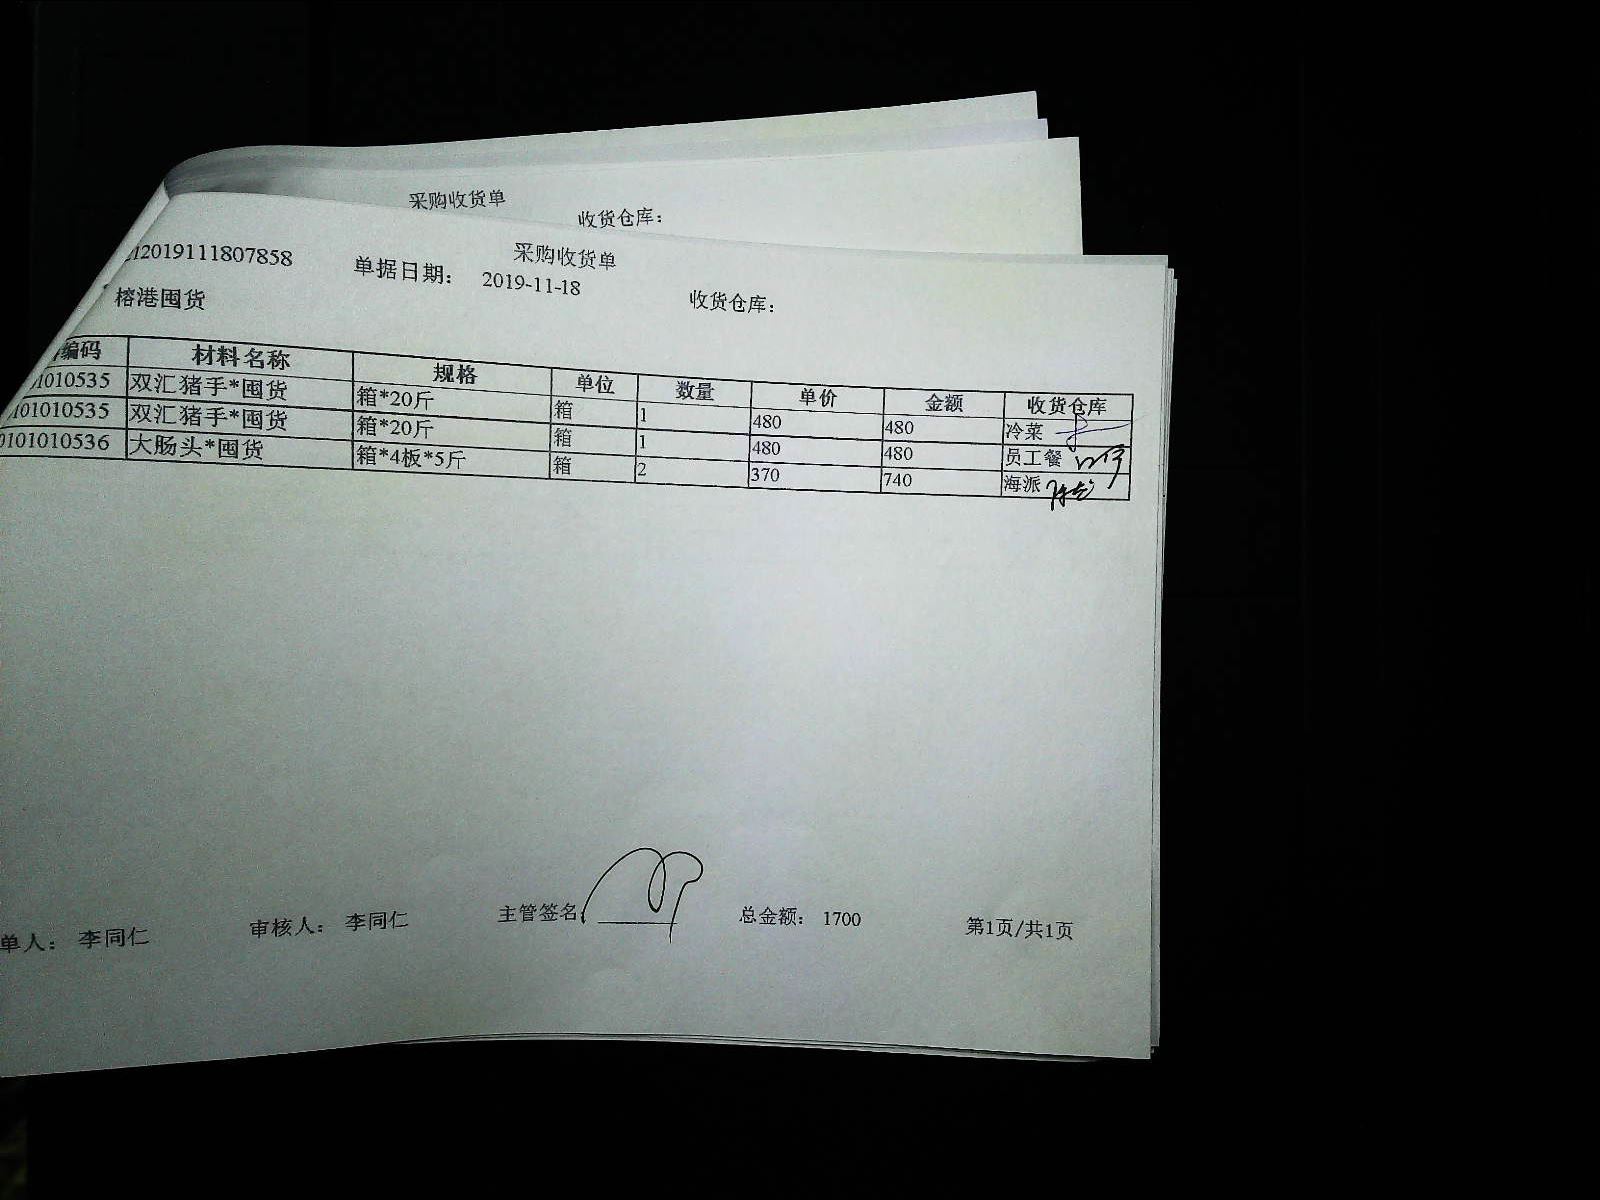 采购收货单
收货仓库：
采购收货单
2019111807858 单据日期： 2019-11-18
榕港囤货 收货仓库：
编码 材料名称 规格 单位 数量 单价 金额 收货仓库
1010535 双汇猪手*囤货 箱*20斤 箱 1 480 480 冷菜
101010535 双汇猪手*囤货 箱*20斤 箱 1 480 480 员工餐
0101010536 大肠头*囤货 箱*4板*5斤 箱 2 370 740 海派
单人： 李同仁 审核人： 李同仁 主管签名 总金额： 1700 第1页/共1页